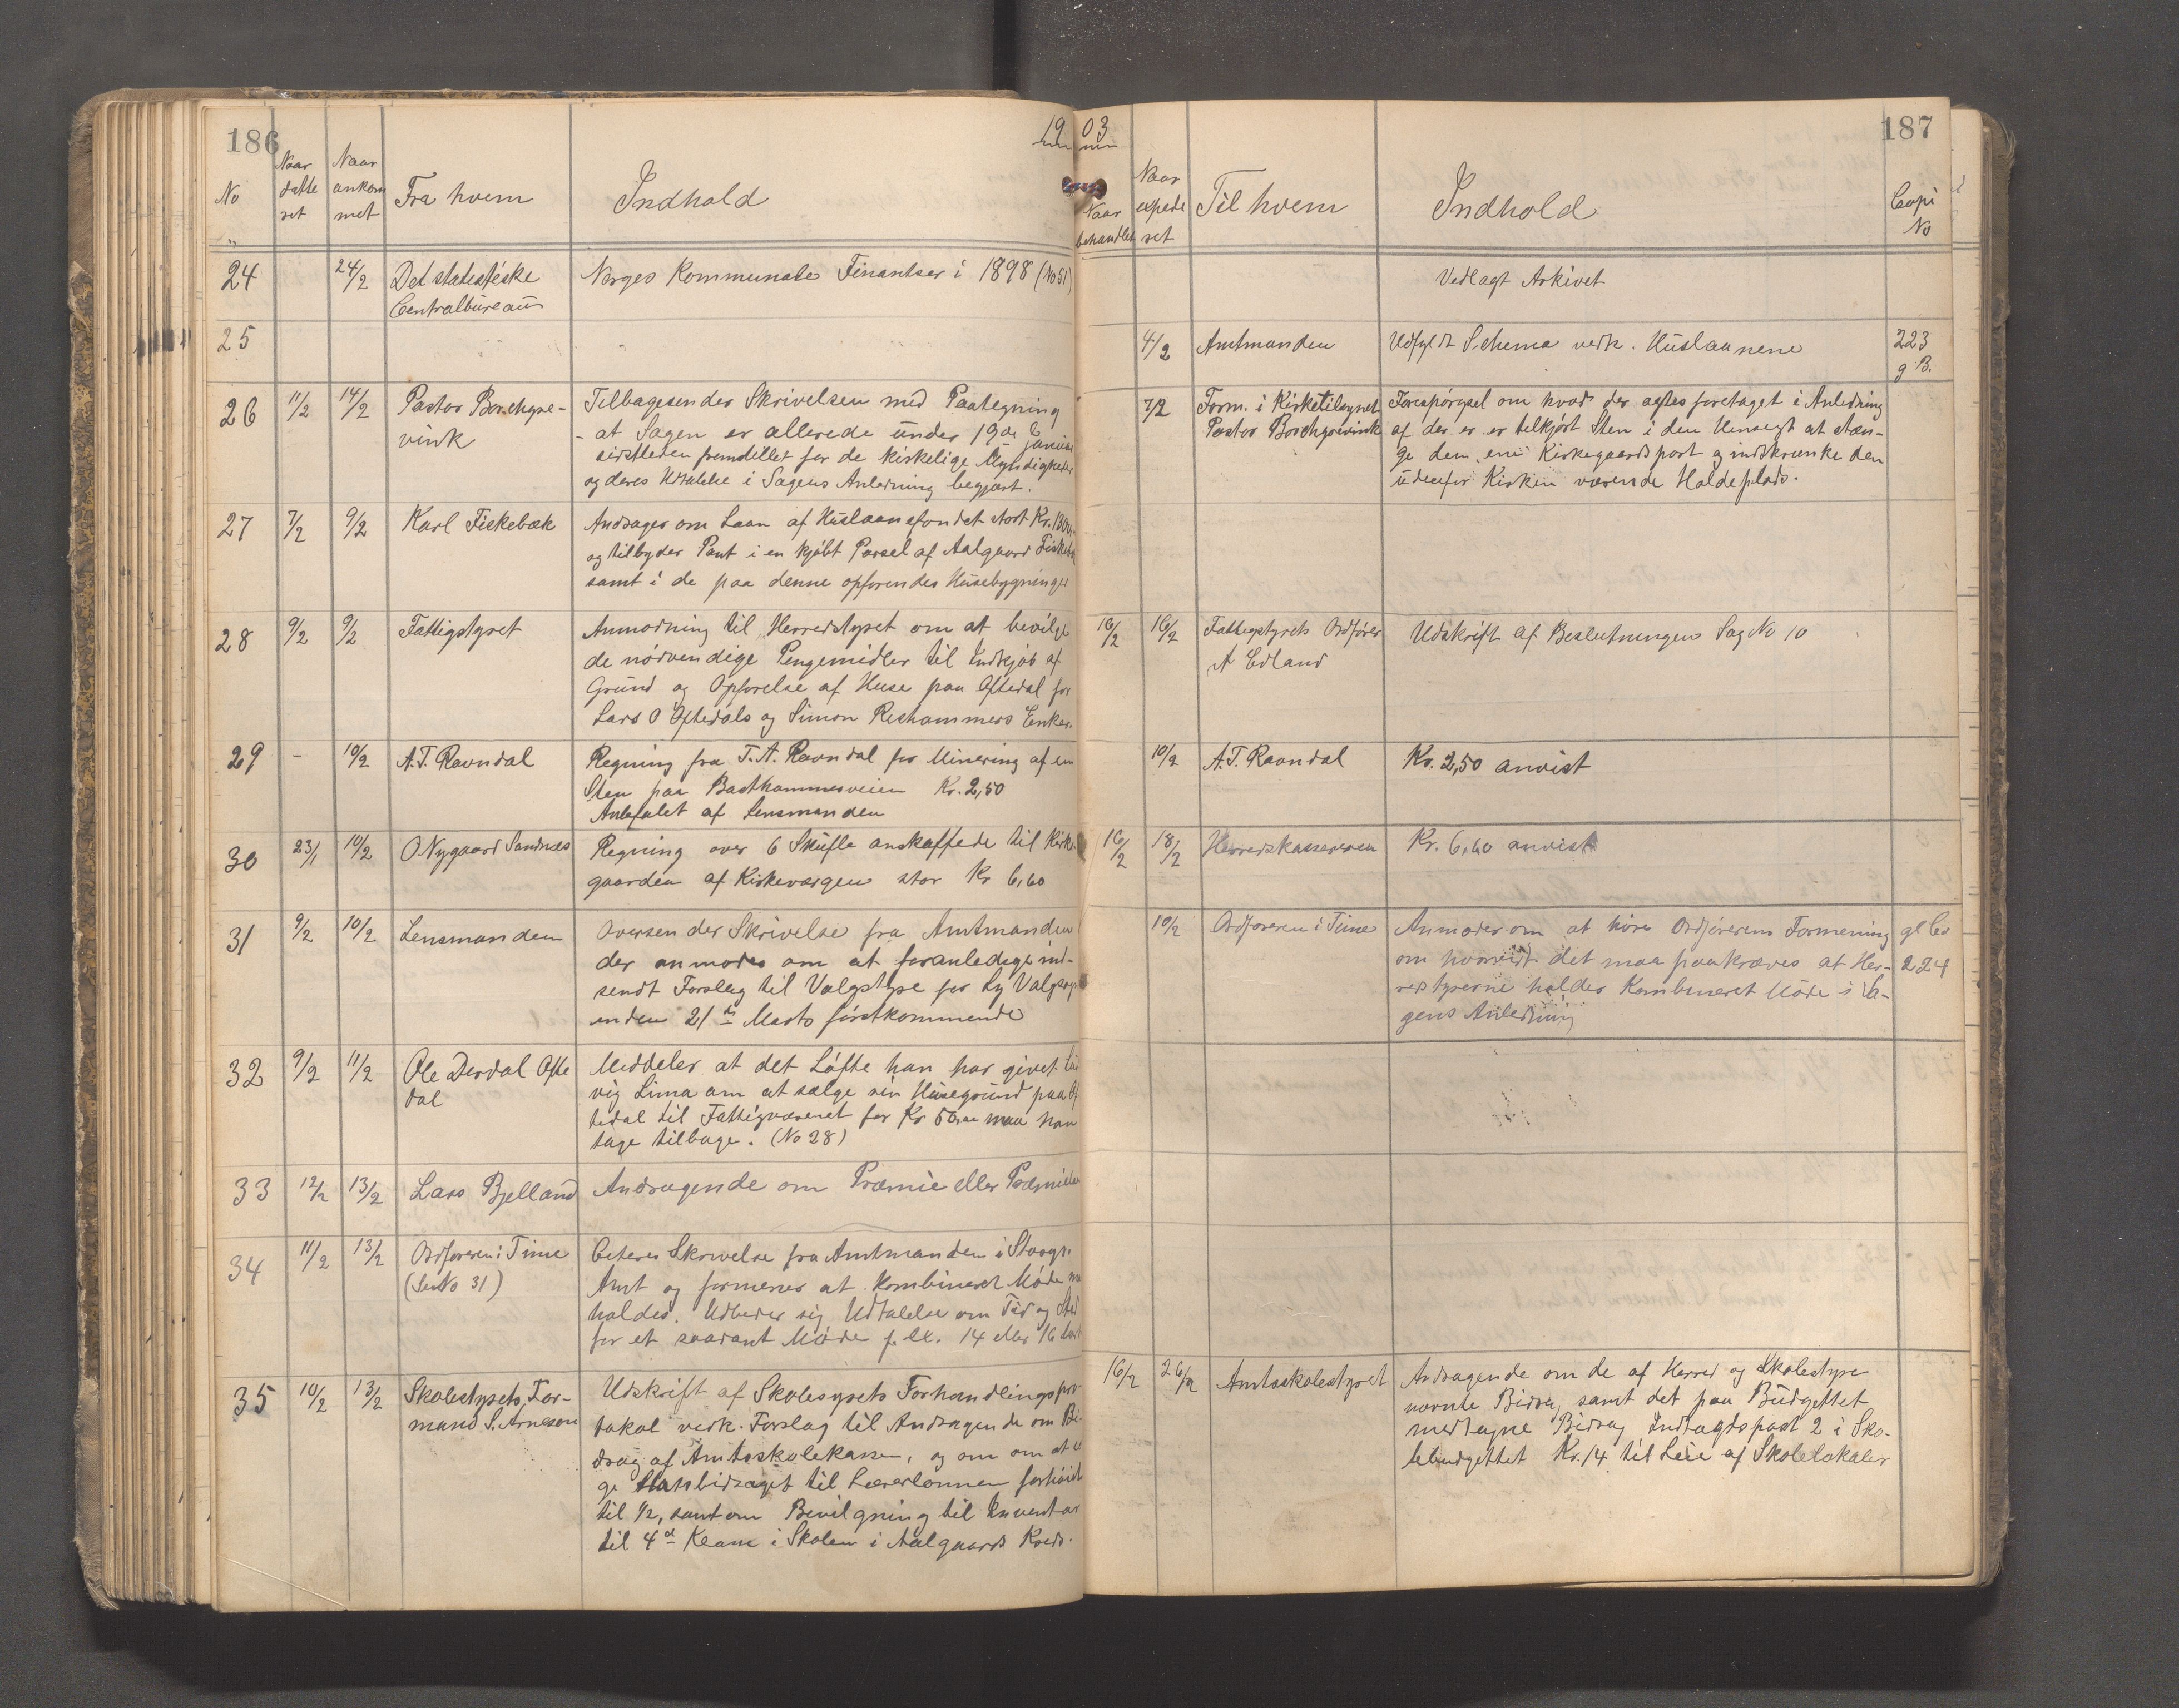 186
19
No
Naar
datte
ret
Naar
ankom
met
Fra hvem
Indhold
24
24/2
Det statistiske
Centralbureau
Norges Kommunale Finantser i 1898 (No 51)
25
26
11/2
14/2
Pastor Borchgre-
vink
Tilbagesender Skrivelsen med Paategning
- at Sagen er allerede under 19de Januar
sidstleden fremstillet for de kirkelige Myndigheder
og deres Udtalelse i Sagens Anledning begjært.
27
7/2
9/2
Karl Fiskebæk
Andrager om Laan af Huslaanefondet stort Kr. 1300,
og tilbyder Pant i en kjøbt Parsel af Aalgaard Fiskebæk
samt i de paa denne opførendes Husebygninger
28
9/2
9/2
Fattigstyret
Anmodning til Herredstyret om at bevilge
de nødvendige Pengemidler til Indkjøb af
Grund og Opførelse af Huse paa Oftedal for
Lars O Oftedals og Simon Reshammers Enker.
29
-
10/2
A. T. Ravndal
Regning fra T. A. Ravndal for Minering af en
Sten paa Bastkammerveien Kr. 2,50
Anbefalet af Lensmanden
30
23/1
10/2
O Nygaard Sandnæs
Regning over 6 Skufle anskaffede til Kirke
gaarden af Kirkeværgen stor Kr 6,60
31
9/2
10/2
Lensmanden
Oversender Skrivelse fra Amtmanden
der anmodes om at foranledige ind-
sendt Forslag til Valgstyre for Ly Valgsogn
inden 21de Marts førstkommende
32
9/2
11/2
Ole Derdal Ofte
dal
Meddeler at det Løfte han har givet Lud
vig Lima om at sælge sin Husegrund paa Of
tedal til Fattigvæsenet for Kr 50,00 maa han
tage tilbage. (No 28)
33
12/2
13/2
Lars Bjelland
Andragende om Præmie eller Præmielaan
34
11/2
13/2
Ordføreren i Time
(Se No 31)
Citerer Skrivelse fra Amtmanden i Stavgr.
Amt og formener at kombineret Møde maa
holdes. Udbeder sig Udtalelse om Tid og Sted
for et saadant Møde f. Ex. 14 eller 16 Marts
35
10/2
13/2
Skolestyrets For-
mand S. Arnesen
Udskrift af Skolesyrets Forhandlingspro-
tokol vedk. Forslag til Andragende om Bi-
drag af Amtsskolekassen, og om om at
ge Statsbidraget til Lærerlønnen forhøiet
til 1/2, samt om Bevilgning til Inventar
til 4de Klasse i Skolen i Aalgaards Kreds.
03
187
Naar
behandlet
Naar
expede
ret
Til hvem
Indhold
Copi
No
Vedlagt Arkivet
4/2
Amtmanden
Udfyldt Schema vedk. Huslaanene
223
g B.
7/2
Form. i Kirketilsynet
Pastor Borchgrevink
Forespørgsel om hvad der agtes foretaget i Anledning
af der er er tilkjørt Sten i den Hensigt at stæn-
ge den ene Kirkegaardsport og indskrænke den
udenfor Kirken værende Holdeplads.
16/2
16/2
Fattigstyrets Ordfører
A Edland
Udskrift af Beslutningen Sag No 10
10/2
A. T. Ravndal
Kr. 2,50 anvist
16/2
18/2
Herredskassereren
Kr. 6,60 anvist
10/2
Ordføreren i Time
Anmoder om at høre Ordførerens Formening
om hvorvidt det maa paakræves at Her-
redstyrerne holder Kombineret Møde i Sa-
gens Anledning
gl Co
224
16/2
26/2
Amtsskolestyret
Andragende om de af Herred og Skolestyre
nævnte Bidrag samt det paa Budgettet
medtagne Bidrag Indtægtspost 2 i Sko-
lebudgettet Kr. 14 til Leie af Skolelokaler